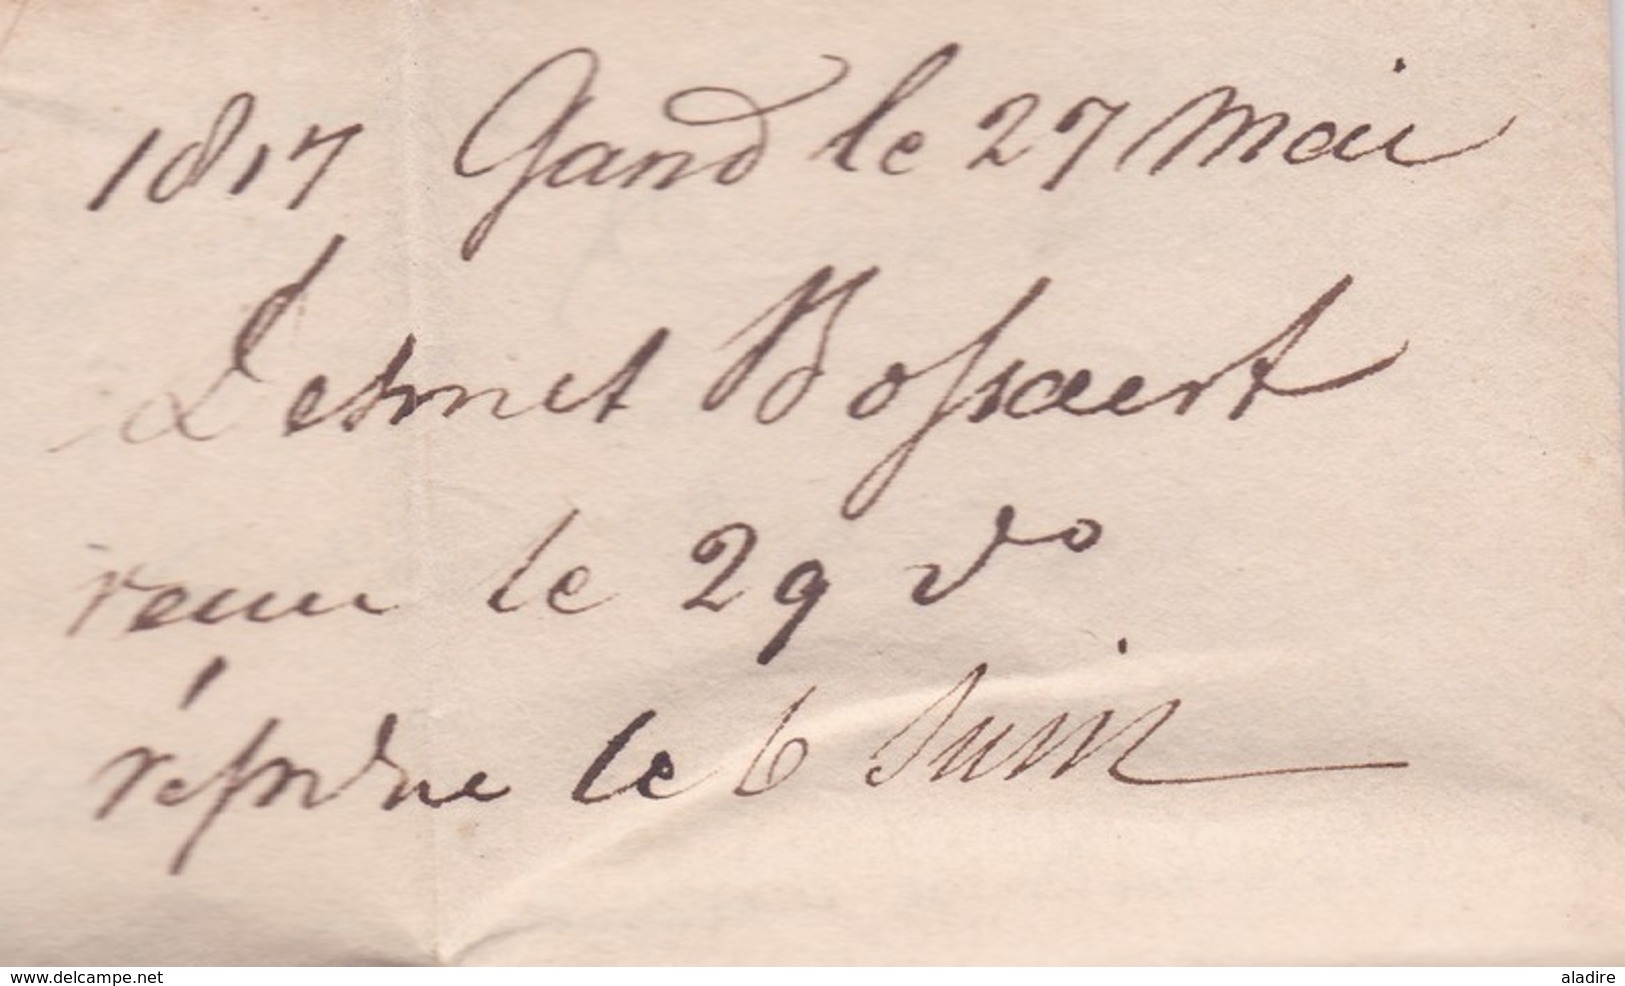 1817 Gand le 27 Mai
Desmet Bossaert
recue le 29 do
répondue le 6 Juin
www.delcampe.net
aladire